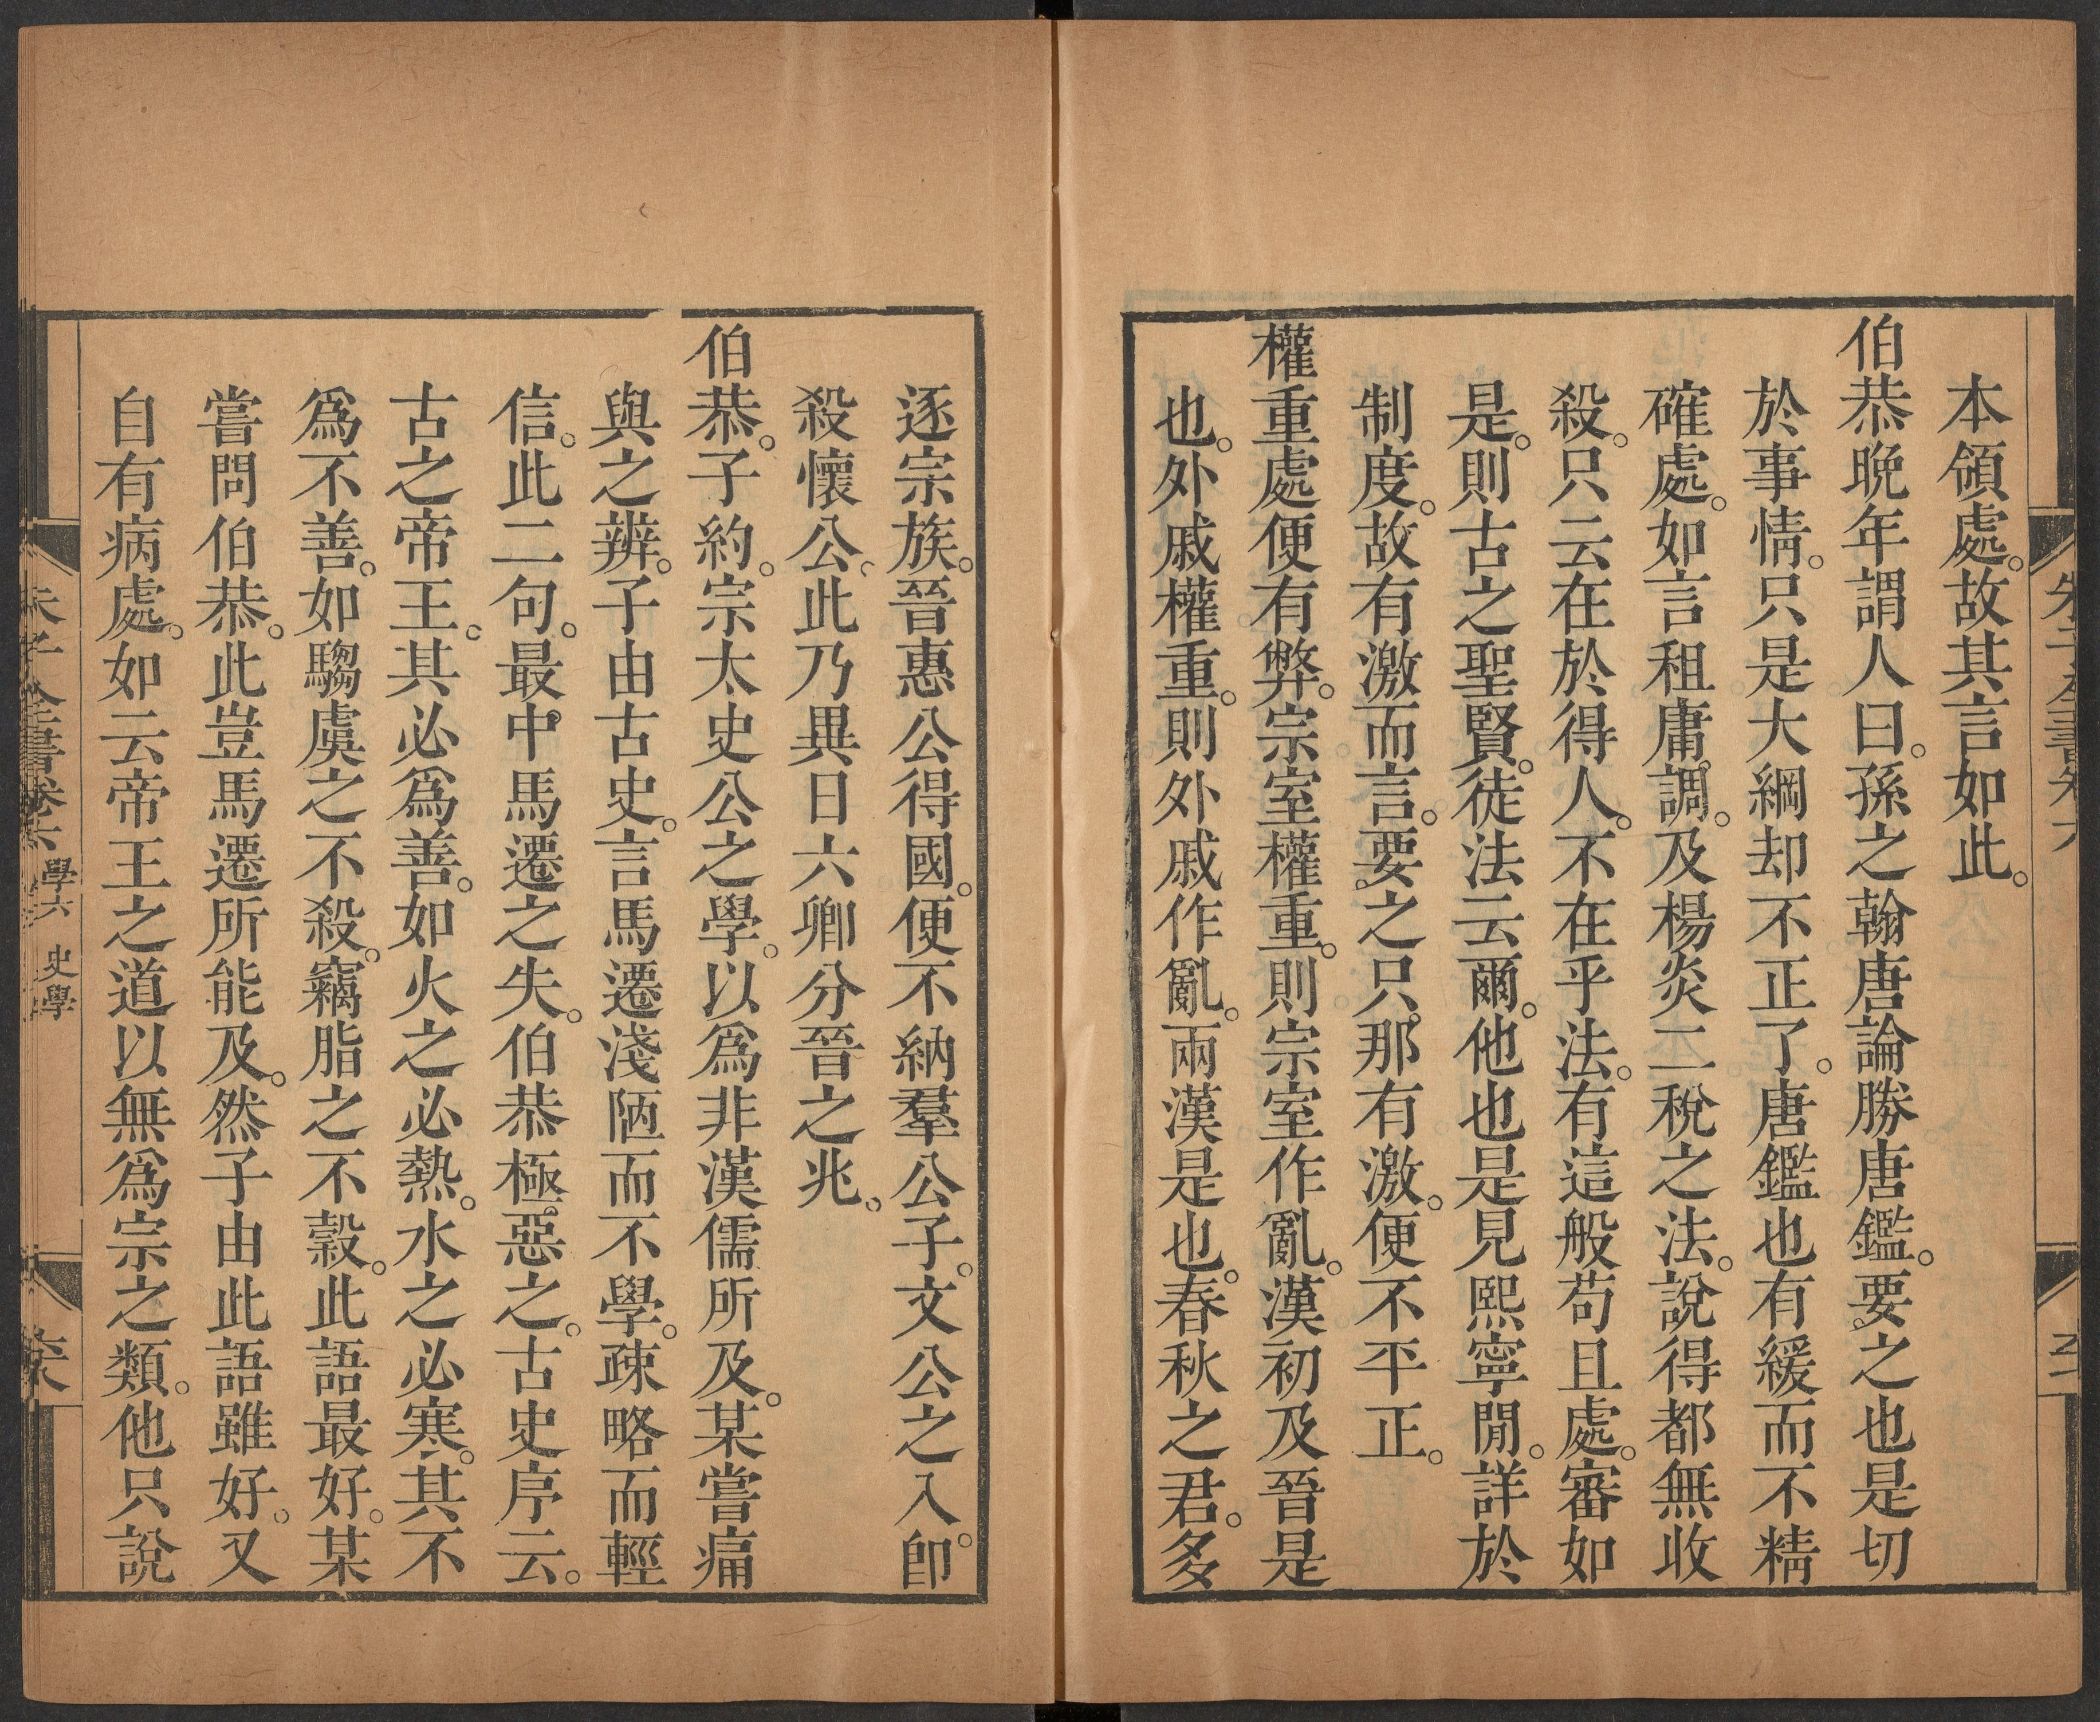 本領處。故其言如此。
伯恭晚年謂人曰。孫之翰唐論勝唐鑑。要之也是切
於事情。只是大綱却不正了。唐鑑也有緩而不精
確處。如言租庸調。及楊炎二稅之法。說得都無收
殺。只云在於得人。不在乎法。有這般苟且處。審如
是。則古之聖賢。徒法云爾。他也是見熙寧間。詳於
制度。故有激而言。要之只那有激。便不平正。
權重處便有弊。宗室權重。則宗室作亂。漢初及晉是
也。外戚權重。則外戚作亂。兩漢是也。春秋之君。多
逐宗族。晉惠公得國。便不納羣公子。文公之入。卽
殺懷公。此乃異日六卿分晉之兆。
伯恭。子約。宗太史公之學。以爲非漢儒所及。某嘗痛
與之辨。子由古史。言馬遷淺陋而不學。疎略而輕
信。此二句。最中馬遷之失。伯恭極惡之。古史序云。
古之帝王。其必爲善。如火之必熱。水之必寒。其不
爲不善。如騶虞之不殺。竊脂之不穀。此語最好。某
嘗問伯恭。此豈馬遷所能及。然子由此語雖好。又
自有病處。如云帝王之道以無爲宗之類。他只說
朱子全書卷六
學六 史學